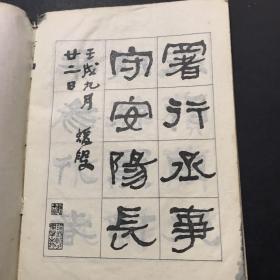 署行丞事
守安陽長
壬戌九月
廿二日